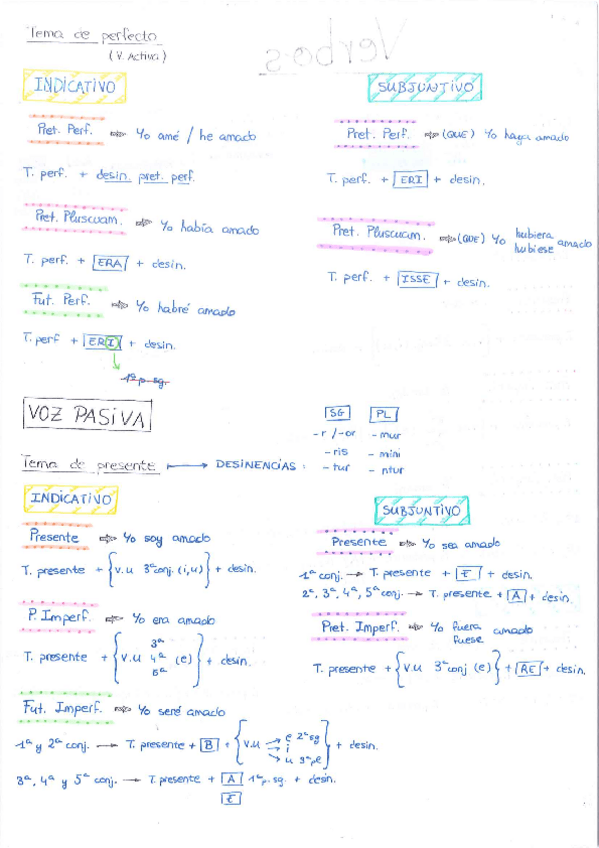 Verbos
Tema de perfecto
(V. Activa)
INDICATIVO
Pret. Perf. ⇒ Yo amé / he amado
T. perf. + desin. pret. perf.
Pret. Pluscuam. ⇒ Yo había amado
T. perf. + ERA + desin.
Fut. Perf. ⇒ Yo habré amado
T. perf + ERI + desin.
1ª p. sg.
SUBJUNTIVO
Pret. Perf. ⇒ (QUE) Yo haya amado
T. perf. + ERI + desin.
Pret. Pluscuam. ⇒ (QUE) Yo hubiera hubiese amado
T. perf. + ISSE + desin.
VOZ PASIVA
Tema de presente → DESINENCIAS:
SG PL
-r /-or - mur
-ris - mini
-tur - ntur
INDICATIVO
Presente ⇒ Yo soy amado
T. presente + {v.u 3ª conj. (i,u)} + desin.
P. Imperf. ⇒ Yo era amado
T. presente + {v.u 3ª 4ª 5ª (e)} + desin.
Fut. Imperf. ⇒ Yo seré amado
1ª y 2ª conj. → T. presente + B + {v.u → e 2ª sg → i → u 3ª pl} + desin.
3ª, 4ª y 5ª conj. → T. presente + A 1ª p. sg. + desin.
E
SUBJUNTIVO
Presente ⇒ Yo sea amado
1ª conj. → T. presente + E + desin.
2ª, 3ª, 4ª, 5ª conj. → T. presente + A + desin.
Pret. Imperf. ⇒ Yo fuera fuese amado
T. presente + {v.u 3ª conj (e)} + RE + desin.